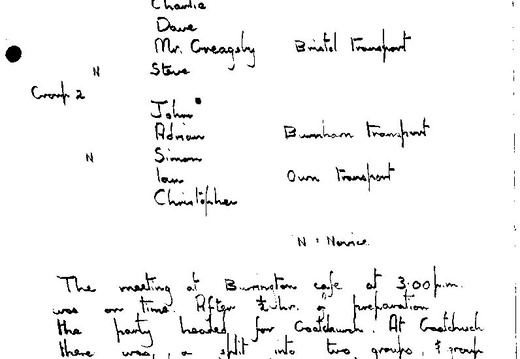 Charlie
Dave
Mr. Greagsby Bristol transport
N Steve
Group 2
John
Adrian Burnham transport
N Simon
Ian Own transport
Christopher
N : Novice.
The meeting at Burrington cafe at 3.00 p.m.
was on time. After ½ hr. preparation
the party headed for Goatchurch. At Goatchurch
there was a split into two groups, 1 group